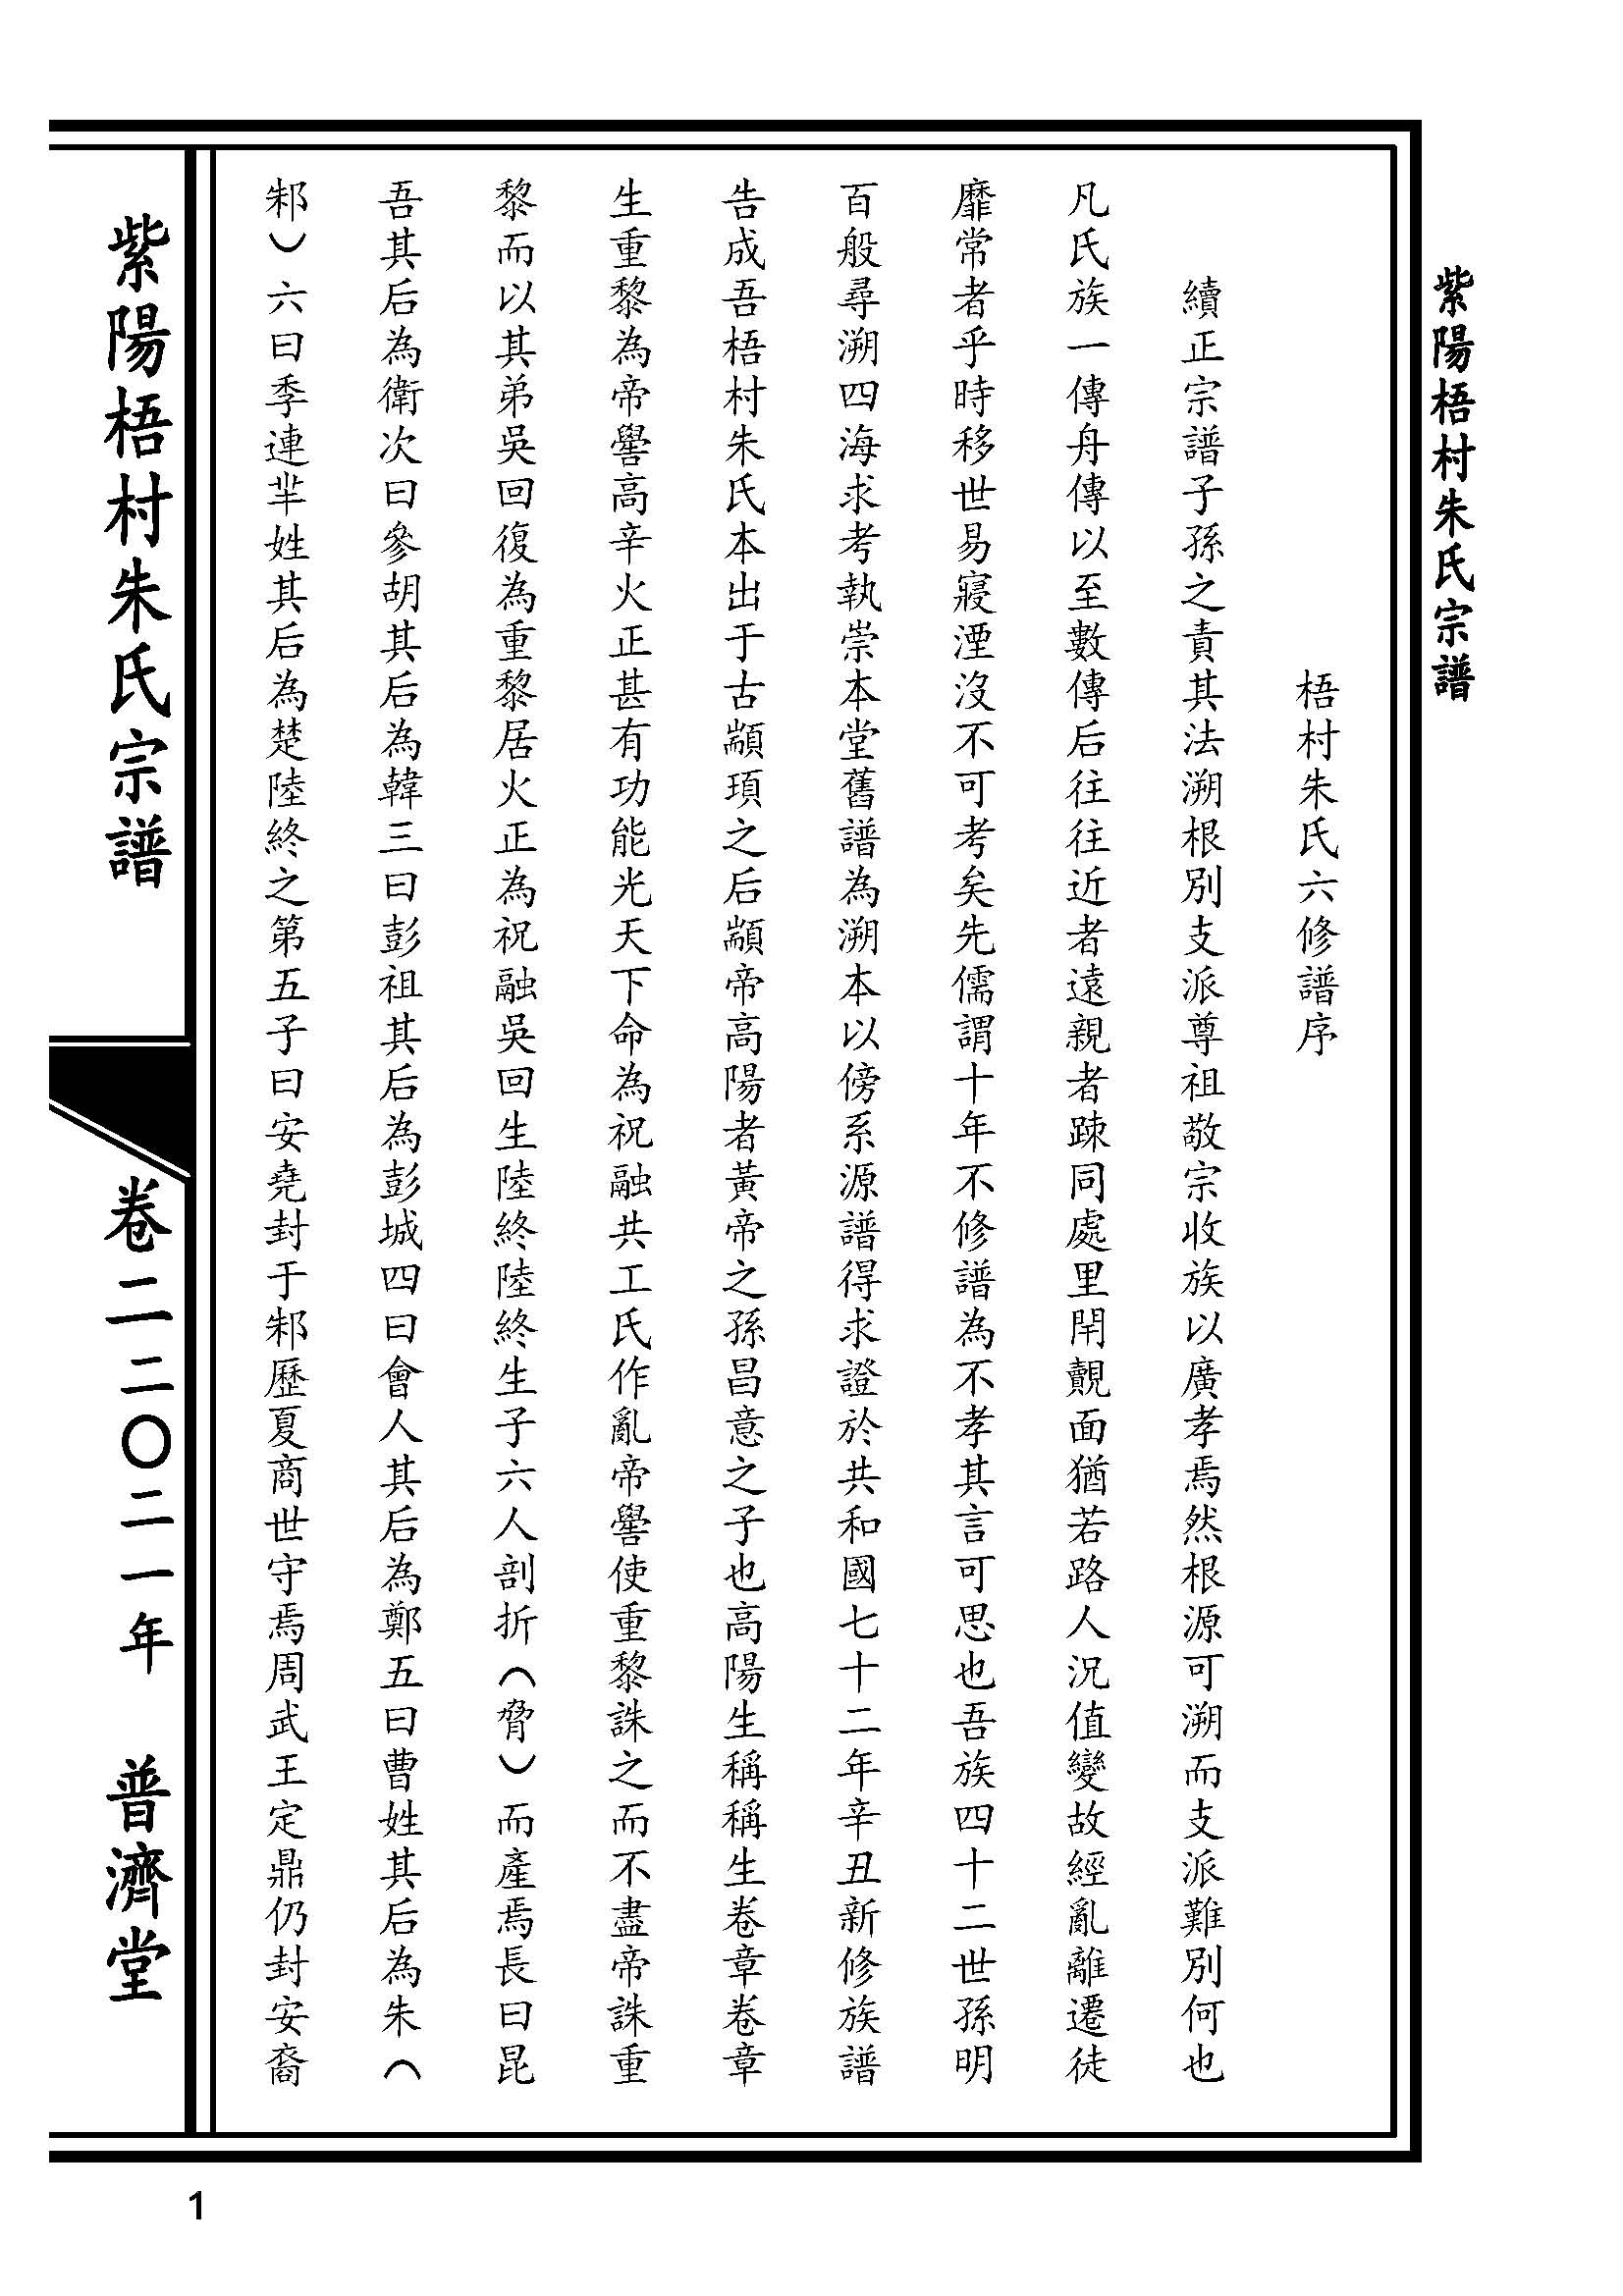 紫陽梧村朱氏宗譜
梧村朱氏六修譜序
續正宗譜子孫之責其法溯根別支派尊祖敬宗收族以廣孝焉然根源可溯而支派難別何也
凡氏族一傳舟傳以至數傳后往往近者遠親者踈同處里閈覿面猶若路人況值變故經亂離遷徒
靡常者乎時移世易寢湮沒不可考矣先儒謂十年不修譜為不孝其言可思也吾族四十二世孫明
百般尋溯四海求考執崇本堂舊譜為溯本以傍系源譜得求證於共和國七十二年辛丑新修族譜
告成吾梧村朱氏本出于古顓頊之后顓帝高陽者黃帝之孫昌意之子也高陽生稱稱生卷章卷章
生重黎為帝嚳高辛火正甚有功能光天下命為祝融共工氏作亂帝嚳使重黎誅之而不盡帝誅重
黎而以其弟吳回復為重黎居火正為祝融吳回生陸終陸終生子六人剖折（脅）而產焉長曰昆
吾其后為衛次曰參胡其后為韓三曰彭祖其后為彭城四曰會人其后為鄭五曰曹姓其后為朱（
邾）六曰季連羋姓其后為楚陸終之第五子曰安堯封于邾歷夏商世守焉周武王定鼎仍封安裔
紫陽梧村朱氏宗譜
卷二
二〇二一年
普濟堂
1